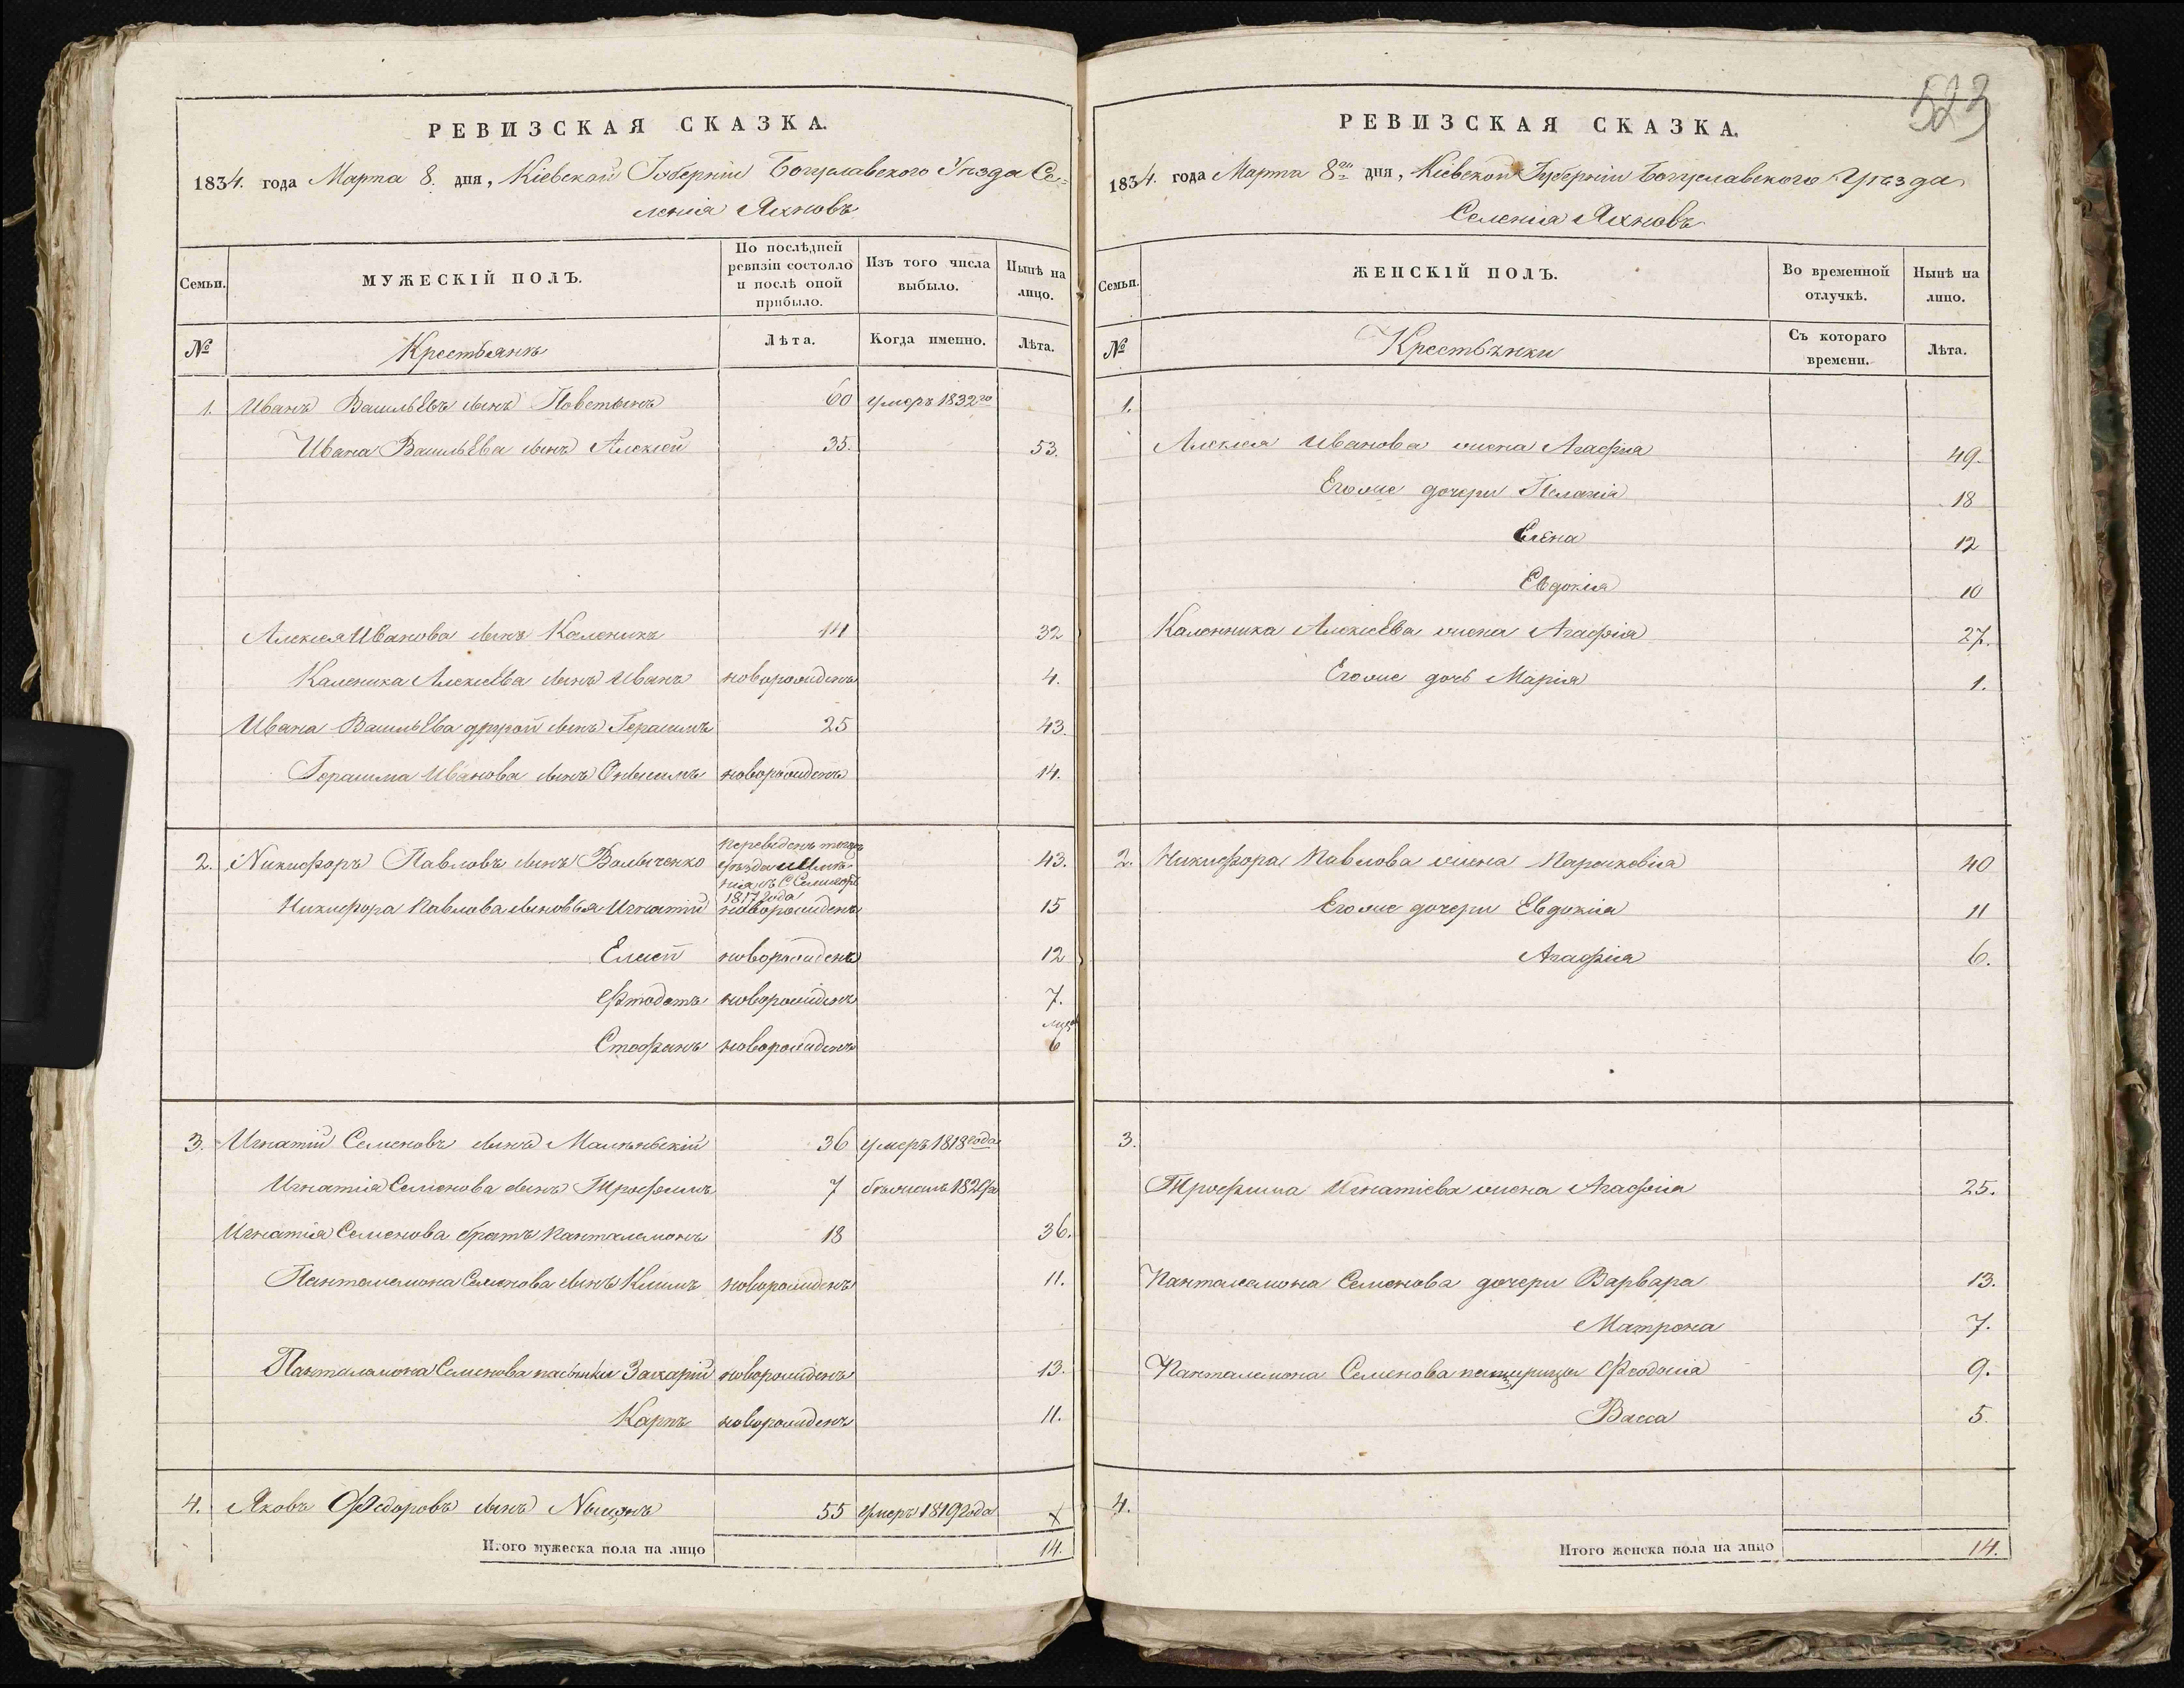 РЕВИЗСКАЯ СКАЗКА.
1834. года Марта 8. дня, Кіевской Губерніи Богуславского Уѣзда Се=
ленія Яхновъ
Семьи.
МУЖЕСКІЙ ПОЛЪ.
По послѣдней
ревизіи состояло
и послѣ оной
прибыло.
Изъ того числа
выбыло.
Нынѣ на
лицо.
№
Крестьянъ
Лѣта.
Когда именно.
Лѣта.
1. Иванъ Васильевъ сынъ 60 умеръ 1832го
Ивана Васильева сынъ Алексей 35. 53.
Алексея Иванова сынъ Каленикъ 14 32
Каленика Алексеева сынъ Иванъ новорожденъ 4.
Ивана Васильева другой сынъ Герасимъ 25 43.
Герасима Иванова сынъ Онисимъ новорожденъ 14.
2. Никифоръ Павловъ сынъ переведенъ тогожъ 43.
уѣзда
1817 года
Никифора Павлова сыновья Игнатій новорожденъ 15
Елисей новорожденъ 12
Фтодотъ новорожденъ 7.
Стефанъ новорожденъ 6
3. Игнатій Семеновъ сынъ 36 умеръ 1818 года
Игнатія Семенова сынъ Трофимъ 7
Игнатія Семенова братъ Панталемонъ 18 36.
Панталемона Семенова сынъ Климъ новорожденъ 11.
Панталемона Семенова пасынки Захарій новорожденъ 13.
Карпъ новорожденъ 11.
4. Яковъ Федоровъ сынъ 55 умеръ 1819 года х
Итого мужеска пола на лицо 14.
523
РЕВИЗСКАЯ СКАЗКА.
1834. года Марта 8го дня, Кіевской Губерніи Богуславского Уѣзда
Селенія Яхновъ
Семьи.
ЖЕНСКІЙ ПОЛЪ.
Во временной
отлучкѣ.
Нынѣ на
лицо.
№
Крестьянки
Съ котораго
времени.
Лѣта.
1.
Алексея Иванова жена Агафія 49.
Егоже дочери Пелагія 18
Елена 12
Евдокія 10
Каленника Алексеева жена Агафія 27.
Егоже дочь Марія 1.
2. Никифора Павлова жена Парасковія 40
Егоже дочери Евдокія 11
Агафія 6.
3.
Трофима Игнатіева жена Агафія 25.
Панталемона Семенова дочери Варвара 13.
Матрона 7.
Панталемона Семенова падчерицы Феодосія 9.
Васса 5.
4.
Итого женска пола на лицо 14.